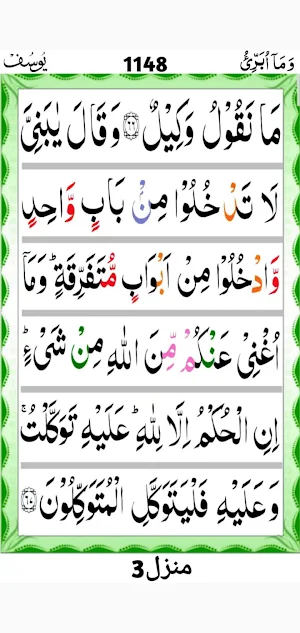 وَمَآ اُبَرِّئُ 1148 يُوسُف
مَا نَقُوۡلُ وَكِيۡلٌ ۝٦٦ وَقَالَ يٰبَنِىَّ
لَا تَدۡخُلُوۡا مِنۡۢ بَابٍ وَّاحِدٍ
وَّادۡخُلُوۡا مِنۡ اَبۡوَابٍ مُّتَفَرِّقَةٍ ؕ وَمَاۤ
اُغۡنِىۡ عَنۡكُمۡ مِّنَ اللّٰهِ مِنۡ شَىۡءٍ ؕ
اِنِ الۡحُكۡمُ اِلَّا لِلّٰهِ ؕ عَلَيۡهِ تَوَكَّلۡتُ ۚ
وَعَلَيۡهِ فَلۡيَتَوَكَّلِ الۡمُتَوَكِّلُوۡنَ ۝٦٧
منزل3